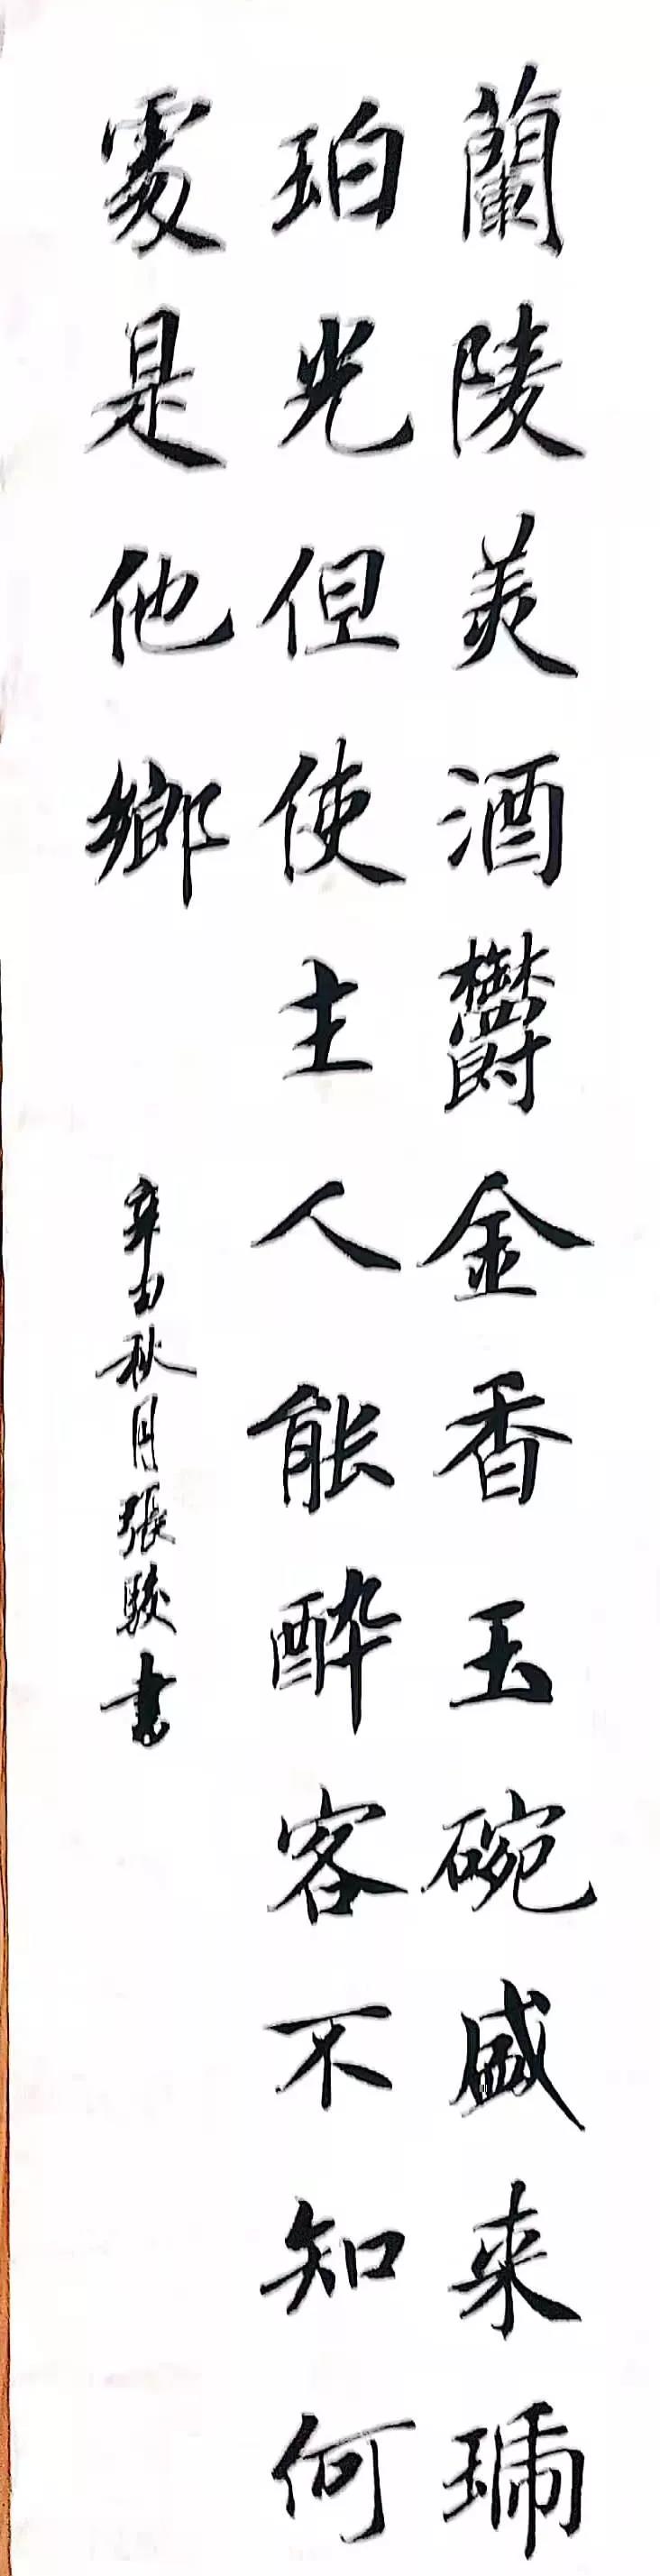 蘭陵美酒欝金香玉碗盛来琥
珀光但使主人能醉客不知何
處是他鄉
辛丑秋月張駿書